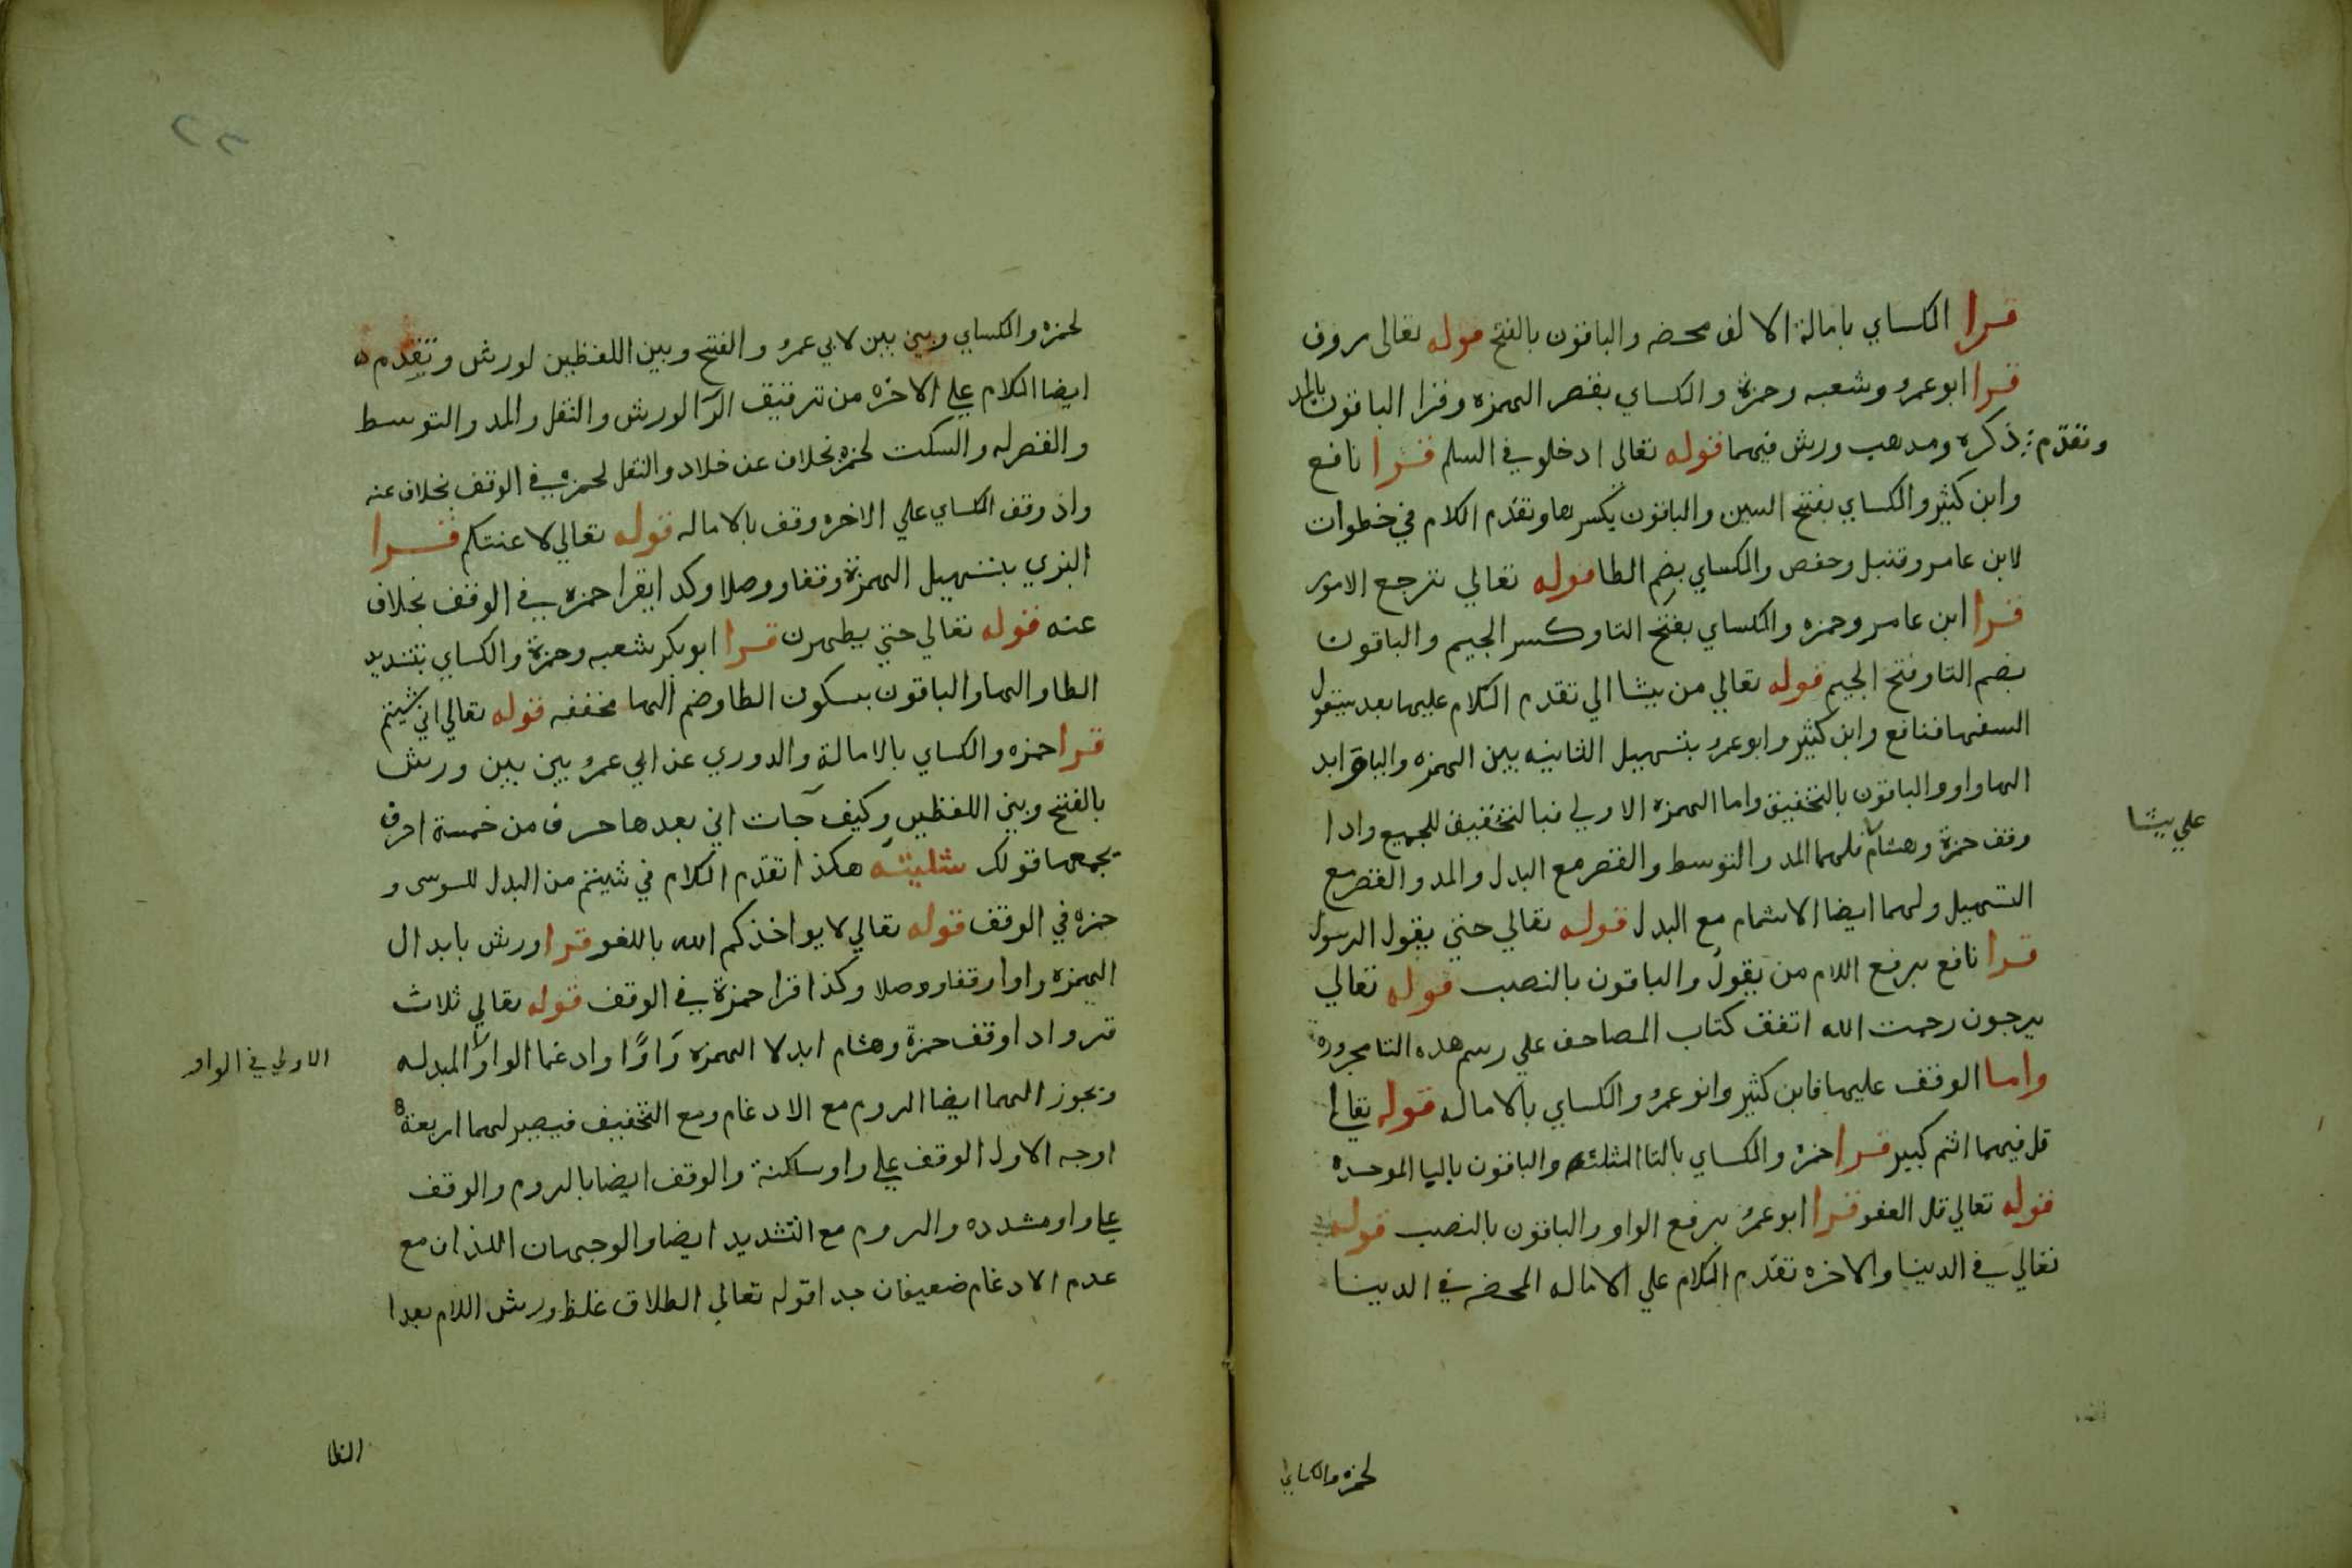 قرا الكساي بامالة الالف محضه والباقون بالفتح قوله تعالى روف
قرا ابوعمرو وشعبه وحمزة والكساي بقصر الهمزه وقرا الباقون بالمد
وتقدم ذكره ومدهب ورش فيهما قوله تعالي ادخلو في السلم قرا نافع
وابن كثير والكساي بفتح السين والباقون بكسرها وتقدم الكلام في خطوات
لابن عامر وقنبل وحفص والكساي بضم الطا قوله تعالي ترجع الامور
قرا ابن عامر وحمزه والكساي بفتح التا وكسر الجيم والباقون
بضم التا وفتح الجيم قوله تعالي من يشا الي تقدم الكلام عليها بعد سيقول
السفها فنافع وابن كثير وابوعمرو بتسهيل الثانيه بين الهمزه واليا وابد
الها واو والباقون بالتحقيق واما الهمزه الاولي فبالتحقيق للجميع وادا
علي يشا
وقف حمزة وهشام فلهما المد والتوسط والقصر مع البدل والمد والقصر مع
التسهيل ولهما ايضا الاشمام مع البدل قوله تعالي حتي يقول الرسول
قرا نافع برفع اللام من يقول والباقون بالنصب قوله تعالي
يرجون رحمت الله اتفق كتاب المصاحف علي رسم هده التا مجرورة
واما الوقف عليها فابن كثير وابوعمرو والكساي بالاماله قوله تعالي
قل فيهما اثم كبير قرا حمزه والكساي بالتا المثلثه والباقون باليا الموحده
قوله تعالي قل العفو قرا ابوعمرو برفع الواو والباقون بالنصب قوله
تعالي في الدينا والاخره تقدم الكلام علي الاماله المحضه في الدينا
لحمزه والكساي
٢٣
لحمزه والكساي وبين بين لابي عمرو والفتح وبين اللفظين لورش وتقدم
ايضا الكلام علي الاخره من ترقيق الرا لورش والنقل والمد والتوسط
والقصر له والسكت لحمزه بخلاف عن خلاد والنقل لحمزه في الوقف بخلاف عنه
واذ وقف الكساي علي الاخره وقف بالاماله قوله تعالي لاعنتكم قرا
البزي بتسهيل الهمزة وقفا ووصلا وكدا يقرا حمزه في الوقف بخلاف
عنه قوله تعالي حتي يطهرن قرا ابوبكر شعبه وحمزة والكساي بتشديد
الطا والها والباقون بسكون الطا وضم الها مخففه قوله تعالي اني شيتم
قرا حمزه والكساي بالامالة والدوري عن ابي عمرو بين بين ورش
بالفتح وبين اللفظين وكيف جات اني بعدها حرف من خمسة احرف
يجمعها قولك شليته هكذا تقدم الكلام في شيتم من البدل للسوسى و
حمزه في الوقف قوله تعالي لا يواخذكم الله باللغو قرا ورش بابدال
الهمزه واوا وقفا ووصلا وكذا قرا حمزة في الوقف قوله تعالي ثلاث
قرو ادا وقف حمزة وهشام ابدلا الهمزه واوًا وادغما الواو المبدله
الاولي في الواو
وتجوز الهما ايضا الروم مع الادغام ومع التخفيف فيصير لهما اربعة
اوجه الاول الوقف علي واو ساكنة والوقف ايضا بالروم والوقف
علي واو مشدده والروم مع التشديد ايضا والوجهان اللذان مع
عدم الادغام ضعيفان جدا قوله تعالي الطلاق غلظ ورش اللام بعدا
الطا